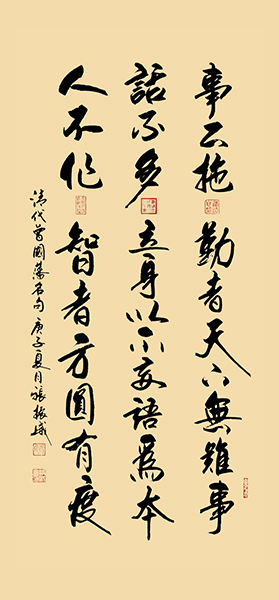 事不拖 勤者天下無難事
話不多 立身以不妄語為本
人不作 智者方圓有度
清代曾國藩名句 庚子夏月張振成